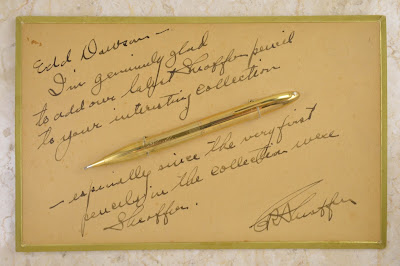 Edd Dawson —
I'm genuinely glad
to add our latest Sheaffer pencil
to your interesting collection
— especially since the very first
pencils in the collection were
Sheaffer.
Sheaffer